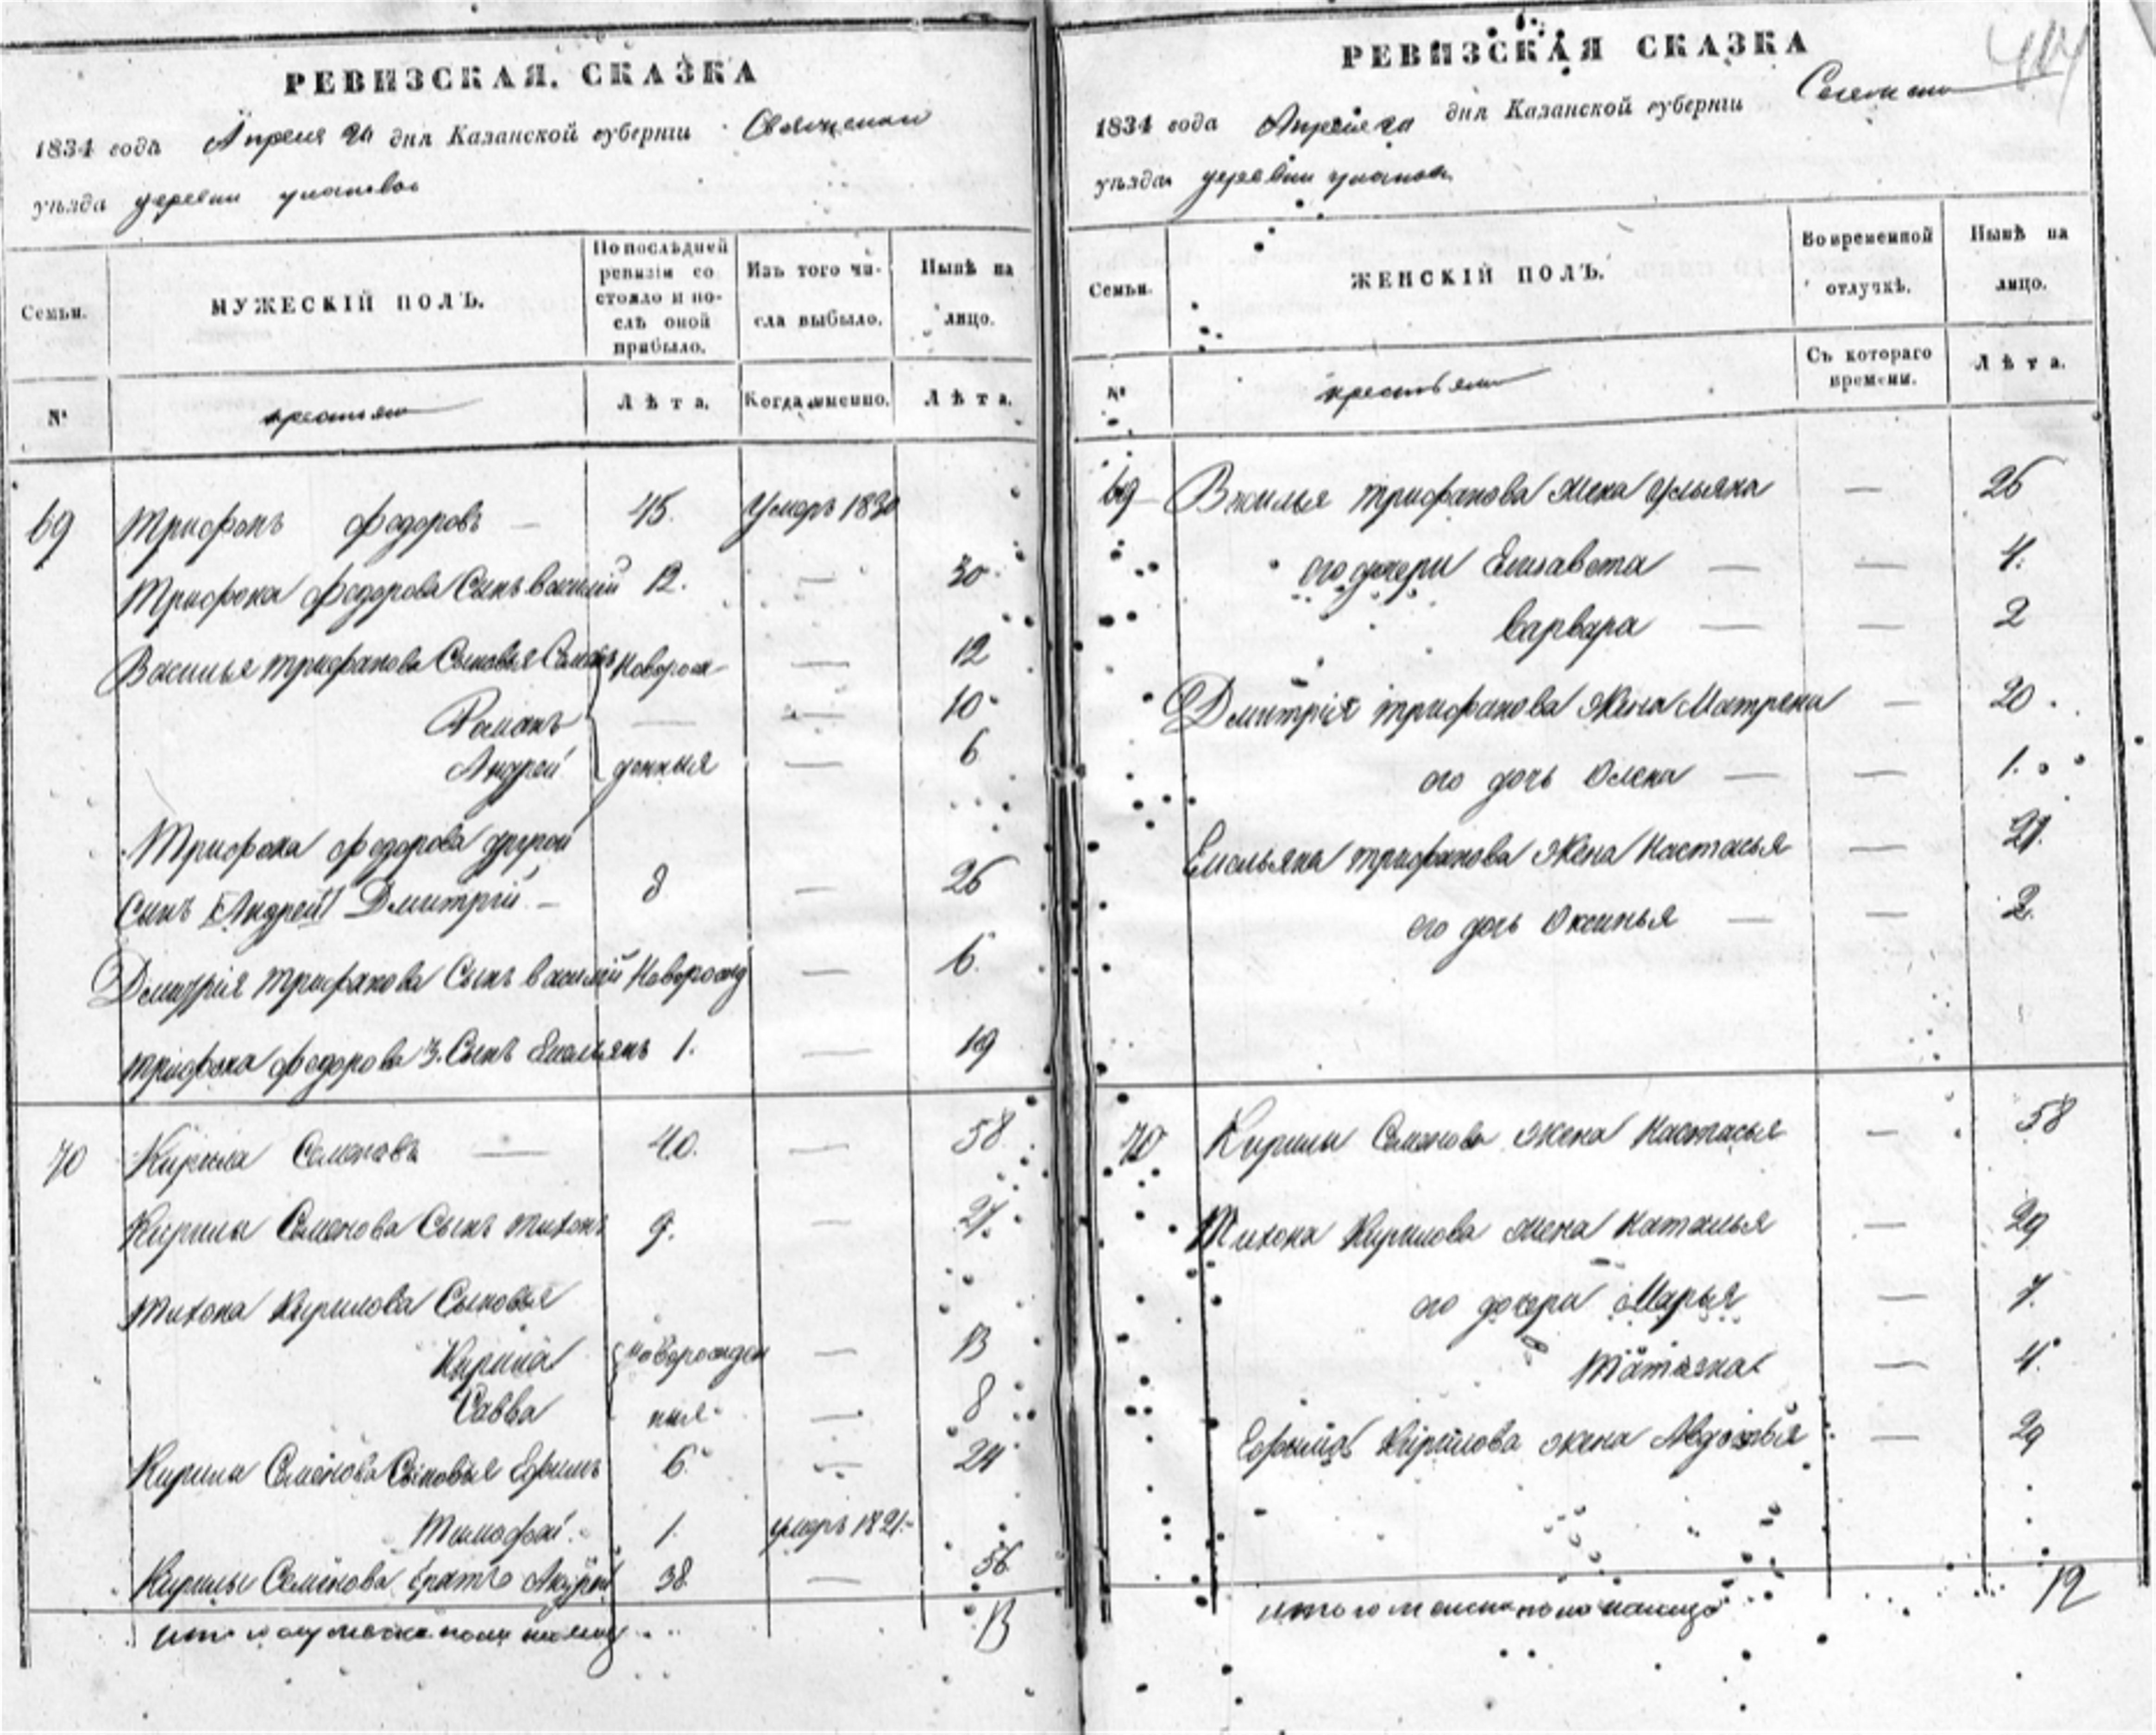 РЕВИЗСКАЯ. СКАЗКА
1834 года Апреля 20 дня Казанской губернiи
уѣзда деревни
Семьи.
МУЖЕСКIЙ ПОЛЪ.
По послѣдней ревизiи состояло и послѣ оной прибыло.
Изъ того числа выбыло.
Нынѣ на лицо.
№
Лѣта.
Когда именно.
Лѣта.
69 Трифонъ Федоровъ — 45. Умеръ 1830
Трифона Федорова Сынъ Василий 12. — 30
Василья Трифанова Сыновья Семенъ Новорож — 12
Романъ — — 10
Андрей денныя — 6
Трифона Федорова другой
Сынъ [Андрей] Дмитрiй — 8 — 26
Дмитрiя Трифанова Сынъ Василий Новорожд — 6.
Трифона Федорова 3. Сынъ Емельянъ 1. — 19
70 Кирила Семеновъ — 40. — 58
Кирилы Семенова Сынъ Тихонъ 9. — 27.
Тихона Кирилова Сыновья
Кирила новорожден — 13
Савва ныя — 8
Кирила Семенова Сыновья Ефимъ 6 — 24
Тимофей. 1. умеръ 1821.
Кирилы Семенова братъ 38 — 56
13
РЕВИЗСКАЯ СКАЗКА
1834 года Апреля 20 дня Казанской губернiи
уѣзда деревни
Семьи.
ЖЕНСКIЙ ПОЛЪ.
Во временной отлучкѣ.
Нынѣ на лицо.
№
Съ котораго времени.
Лѣта.
69 Василья Трифанова Жена Ульяна — 26
его дочери Елисавета — — 4.
Варвара — — 2
Дмитрiя Трифанова Жена Матрена — 20
его дочь Олена — — 1.
Емельяна Трифанова Жена Настасья — 21.
его дочь Оксинья — — 2.
70 Кирилы Семенова жена Настасья — 58
Тихона Кирилова жена Наталья — 29
его дочери Марья — 7.
Татьяна — 4.
Ефима Кирилова жена Авдотья — 29
12